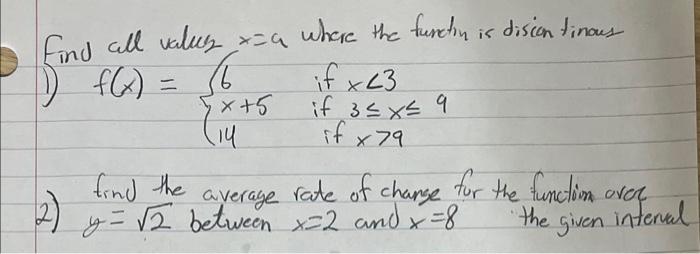 Find all values x=a where the functin is discontinous
1) f(x) = { 6 if x<3
x+5 if 3≤x≤ 9
14 if x>9
2) find the average rate of change for the function over
y=√2 between x=2 and x=8 the given interval